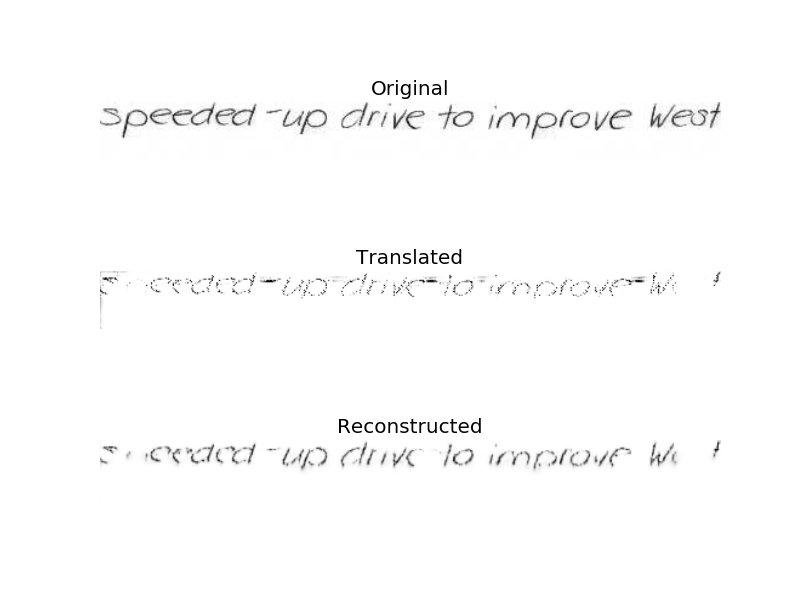 Original
speeded-up drive to improve West
Translated
eeded-up drive to improve
Reconstructed
eeded-up drive to improve